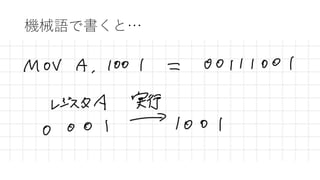 機械語で書くと…
MOV A, 1001 = 00111001
レジスタA 実行
0001 → 1001